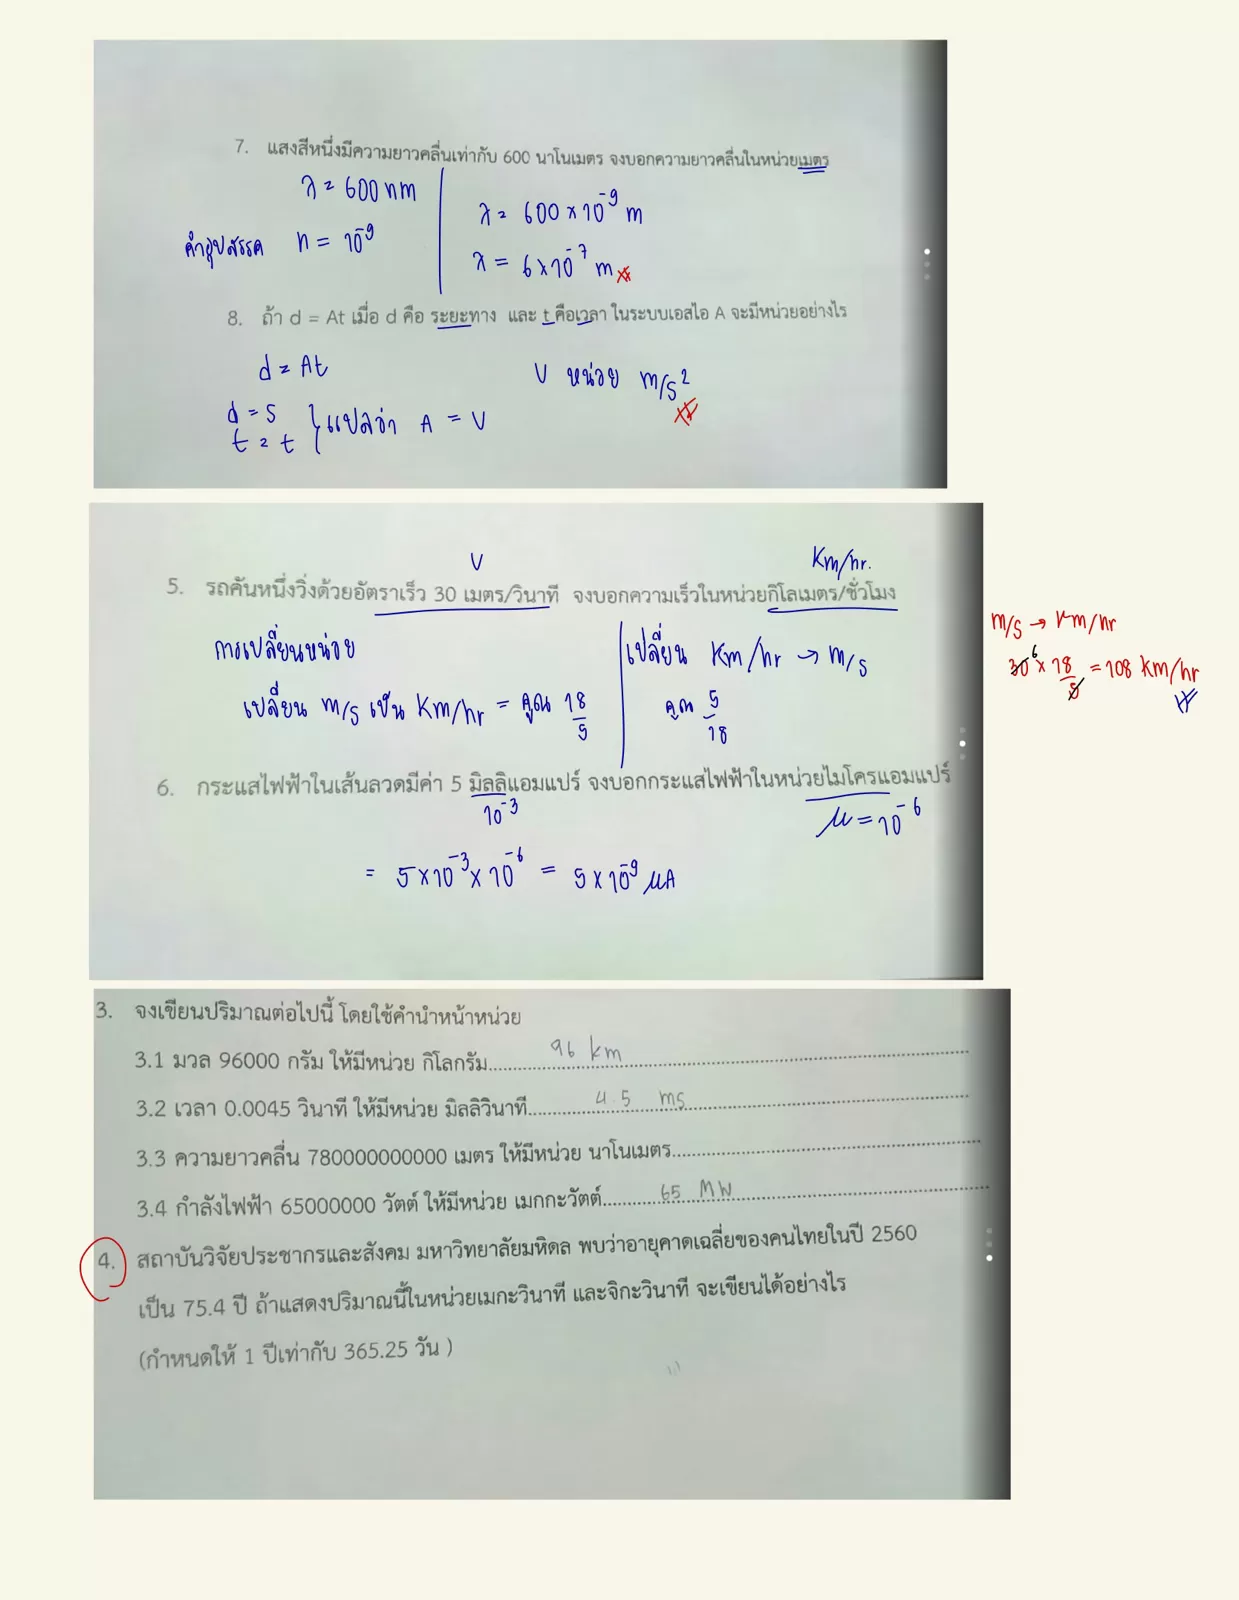 7. แสงสีหนึ่งมีความยาวคลื่นเท่ากับ 600 นาโนเมตร จงบอกความยาวคลื่นในหน่วยเมตร
λ = 600 nm
คำอุปสรรค n = 10⁻⁹
λ = 600 × 10⁻⁹ m
λ = 6 × 10⁻⁷ m
8. ถ้า d = At เมื่อ d คือ ระยะทาง และ t คือเวลา ในระบบเอสไอ A จะมีหน่วยอย่างไร
d = At
d = s
t = t } แปลว่า A = v
v หน่วย m/s²
v
Km/hr.
5. รถคันหนึ่งวิ่งด้วยอัตราเร็ว 30 เมตร/วินาที จงบอกความเร็วในหน่วยกิโลเมตร/ชั่วโมง
การเปลี่ยนหน่วย
เปลี่ยน m/s เป็น Km/hr = คูณ 18/5
เปลี่ยน Km/hr → m/s
คูณ 5/18
m/s → Km/hr
30 6 × 18/5 = 108 Km/hr
6. กระแสไฟฟ้าในเส้นลวดมีค่า 5 มิลลิแอมแปร์ จงบอกกระแสไฟฟ้าในหน่วยไมโครแอมแปร์
10⁻³
μ = 10⁻⁶
= 5 × 10⁻³ × 10⁻⁶ = 5 × 10⁻⁹ μA
3. จงเขียนปริมาณต่อไปนี้ โดยใช้คำนำหน้าหน่วย
3.1 มวล 96000 กรัม ให้มีหน่วย กิโลกรัม..........96 km..........
3.2 เวลา 0.0045 วินาที ให้มีหน่วย มิลลิวินาที..........4.5 ms..........
3.3 ความยาวคลื่น 780000000000 เมตร ให้มีหน่วย นาโนเมตร..........
3.4 กำลังไฟฟ้า 65000000 วัตต์ ให้มีหน่วย เมกกะวัตต์..........65 MW..........
4. สถาบันวิจัยประชากรและสังคม มหาวิทยาลัยมหิดล พบว่าอายุคาดเฉลี่ยของคนไทยในปี 2560
เป็น 75.4 ปี ถ้าแสดงปริมาณนี้ในหน่วยเมกะวินาที และจิกะวินาที จะเขียนได้อย่างไร
(กำหนดให้ 1 ปีเท่ากับ 365.25 วัน )